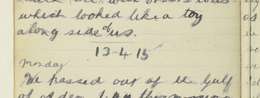 which looked like a toy
along side of us.
13-4-15
Monday
We passed out of the Gulf
of Aden